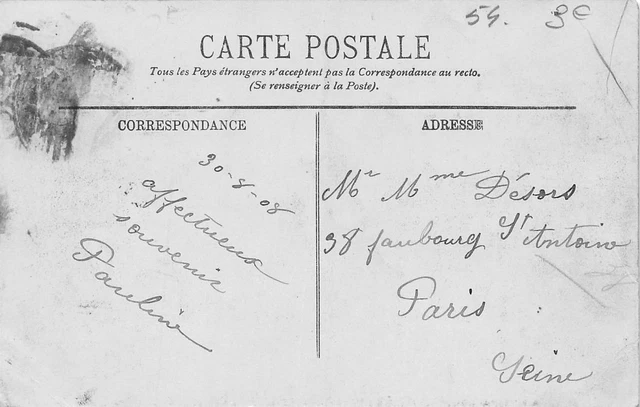 54. 3c
CARTE POSTALE
Tous les Pays étrangers n'acceptent pas la Correspondance au recto.
(Se renseigner à la Poste).
CORRESPONDANCE
30-8-08
affectueux
souvenir
Pauline
ADRESSE
Mr Mme Désors
38 faubourg St Antoine
Paris
Seine